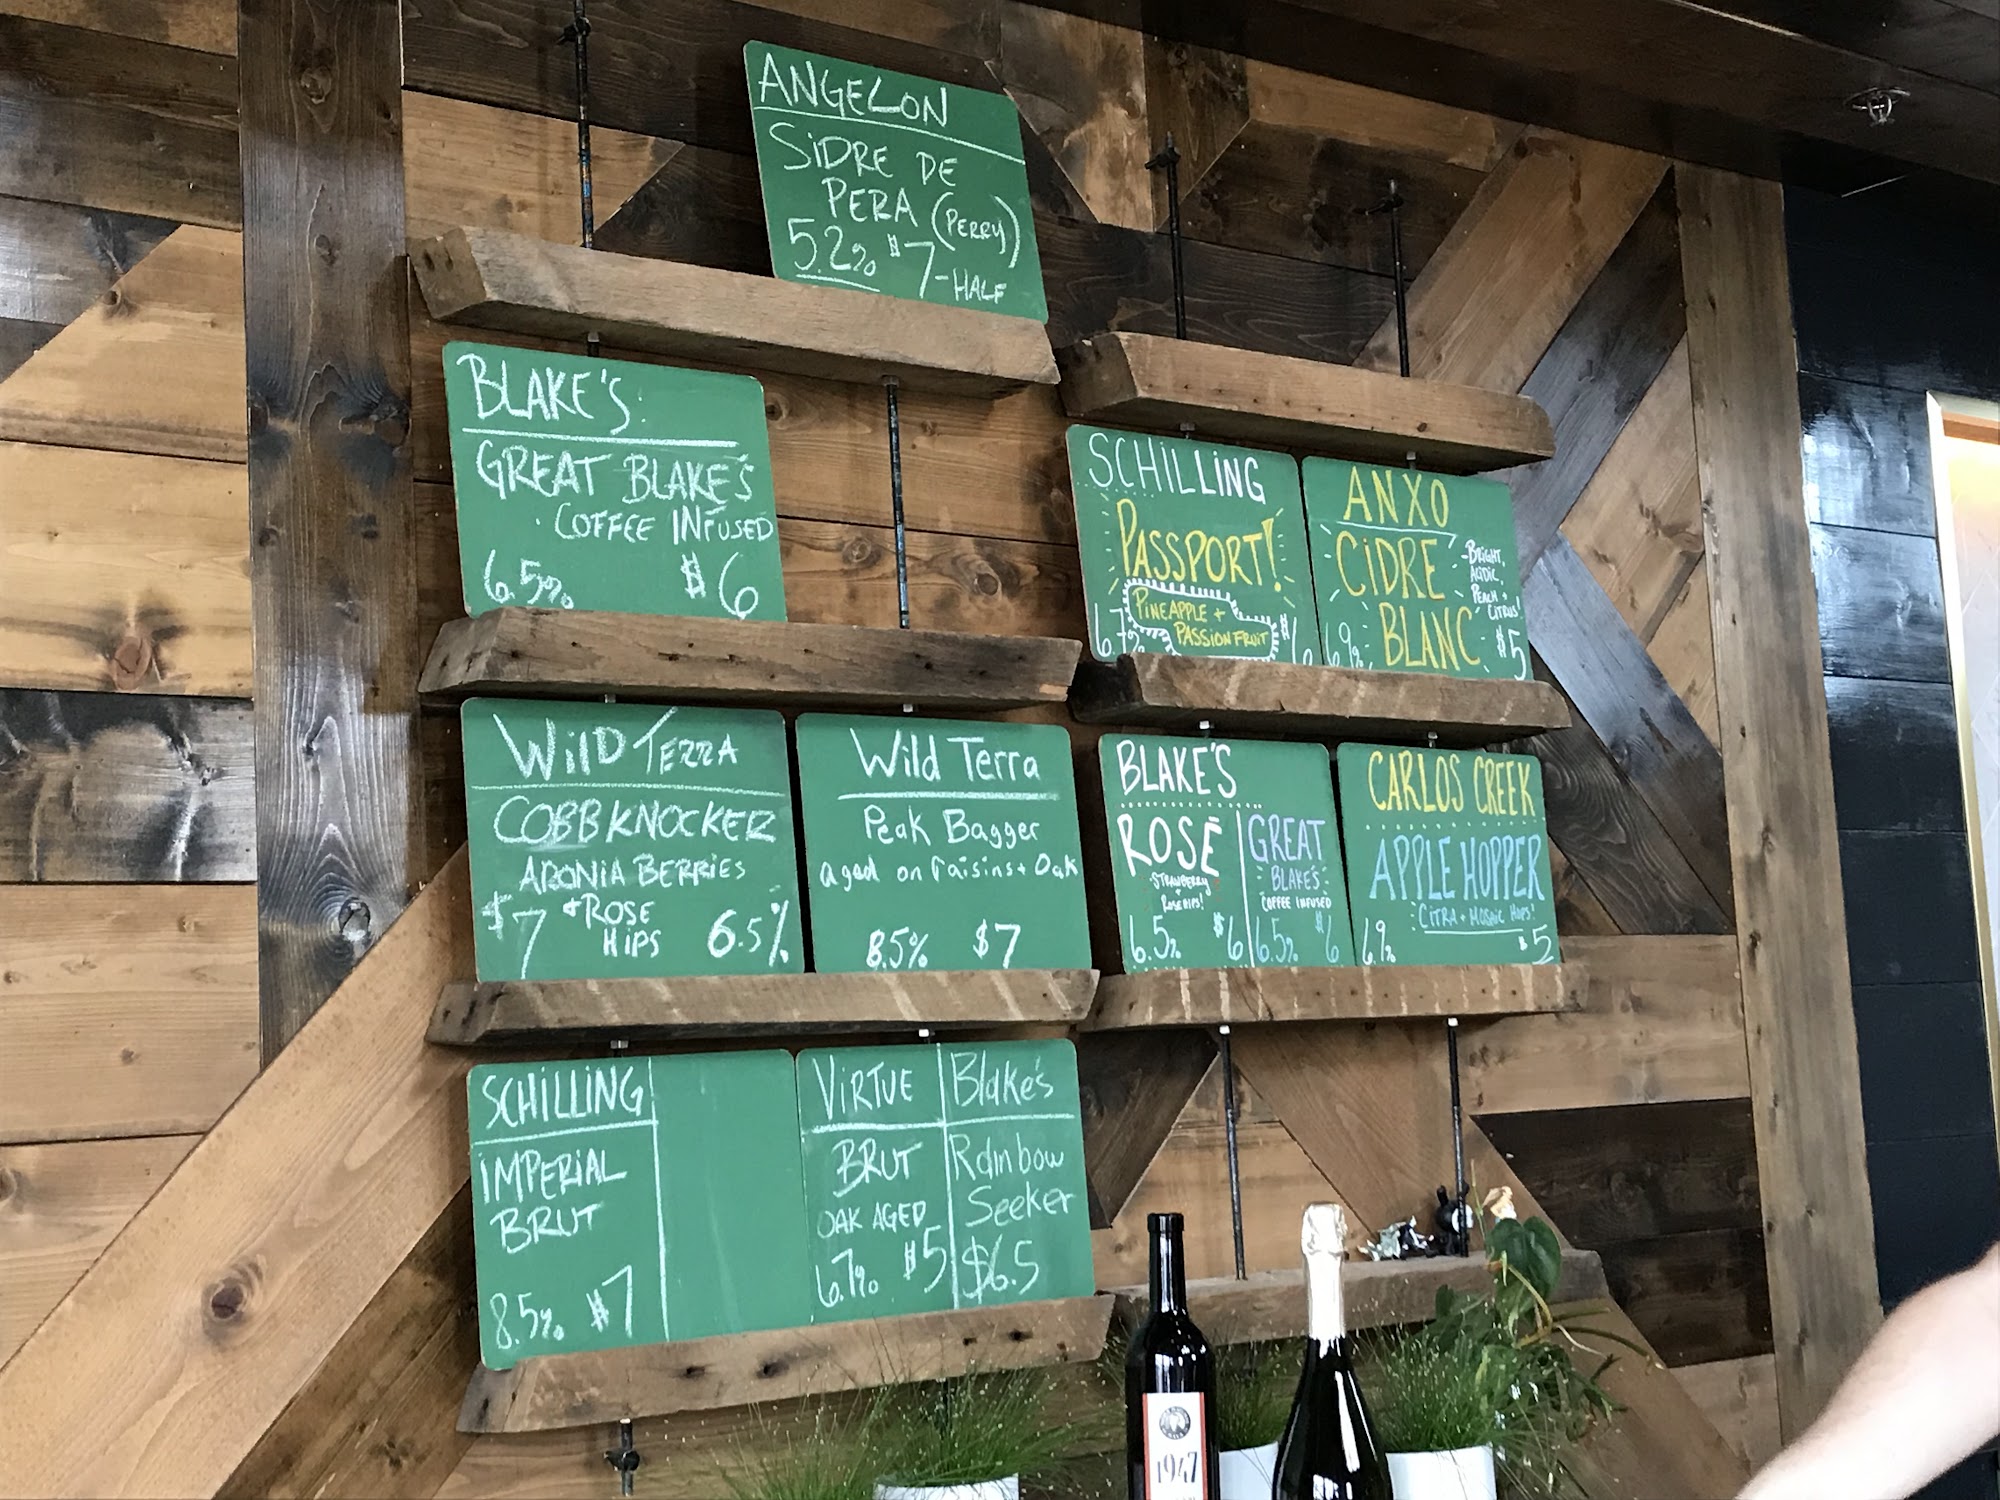 ANGELON
SIDRE DE
PERA (PERRY)
5.2% $7-HALF
BLAKE'S:
GREAT BLAKE'S
COFFEE INFUSED
6.5% $6
SCHILLING
PASSPORT!
PINEAPPLE +
PASSIONFRUIT
6.7% $6
ANXO
CIDRE
BLANC
-BRIGHT,
ACIDIC,
PEACH +
CITRUS!
6.9% $5
WILD TERRA
COBBKNOCKER
ARONIA BERRIES
+ ROSE
HIPS
$7 6.5%
Wild Terra
Peak Bagger
aged on raisins + Oak
8.5% $7
BLAKE'S
ROSÉ
STRAWBERRY
+
ROSEHIPS!
6.5% $6
GREAT
BLAKE'S
COFFEE INFUSED
6.5% $6
CARLOS CREEK
APPLE HOPPER
CITRA + MOSAIC HOPS!
6.9% $5
SCHILLING
IMPERIAL
BRUT
8.5% $7
VIRTUE
BRUT
OAK AGED
6.7% $5
Blake's
Rainbow
Seeker
$6.5
1947